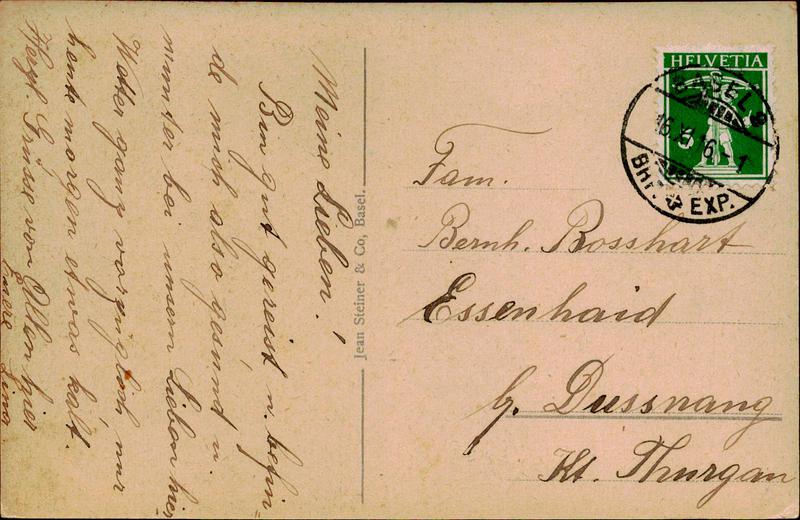 Meine Lieben!
Bin gut gereist u. befin=
de mich also gesund u.
munter bei unsern Lieben hier
Wetter ganz vorzüglich nur
heute morgen etwas kalt.
Herzl. Grüsse von Allen hier
Lina
Jean Steiner & Co, Basel.
HELVETIA
BASEL 9
16.XI.16.-1
BHF. EXP.
Fam.
Bernh. Bosshart
Essenhaid
b. Dussnang
Kt. Thurgau